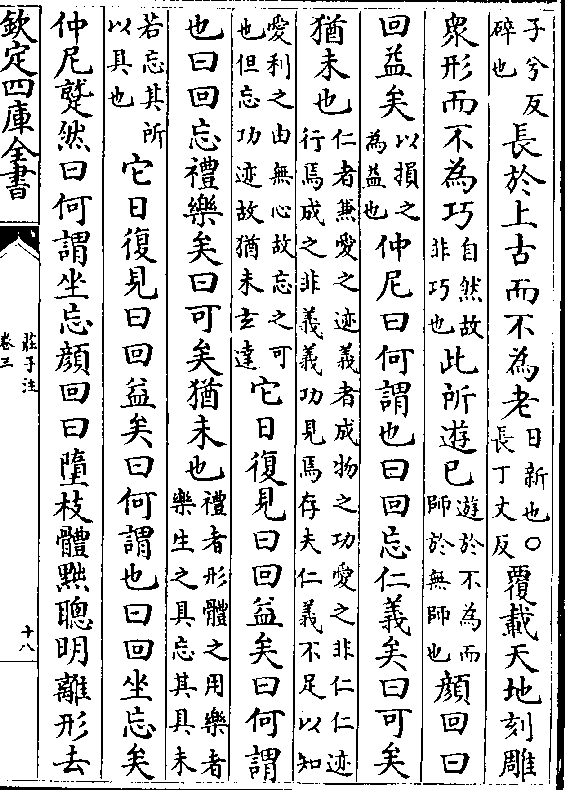 子兮反碎也長於上古而不為老日新也〇長丁丈反覆載天地刻雕
衆形而不為巧自然故非巧也此所遊已遊於不為而師於無師也顔回曰
回益矣以損之為益也仲尼曰何謂也曰回忘仁義矣曰可矣
猶未也仁者兼愛之迹義者成物之功愛之非仁仁迹行焉成之非義義功見焉存夫仁義不足以知
愛利之由無心故忘之可也但忘功迹故猶未玄達它日復見曰回益矣曰何謂
也曰回忘禮樂矣曰可矣猶未也禮者形體之用樂者樂生之具忘其具未
若忘其所以具也它日復見曰回益矣曰何謂也曰回坐忘矣
仲尼蹵然曰何謂坐忘顔回曰墮枝體黜聰明離形去
欽定四庫全書
莊子注
卷三
十八